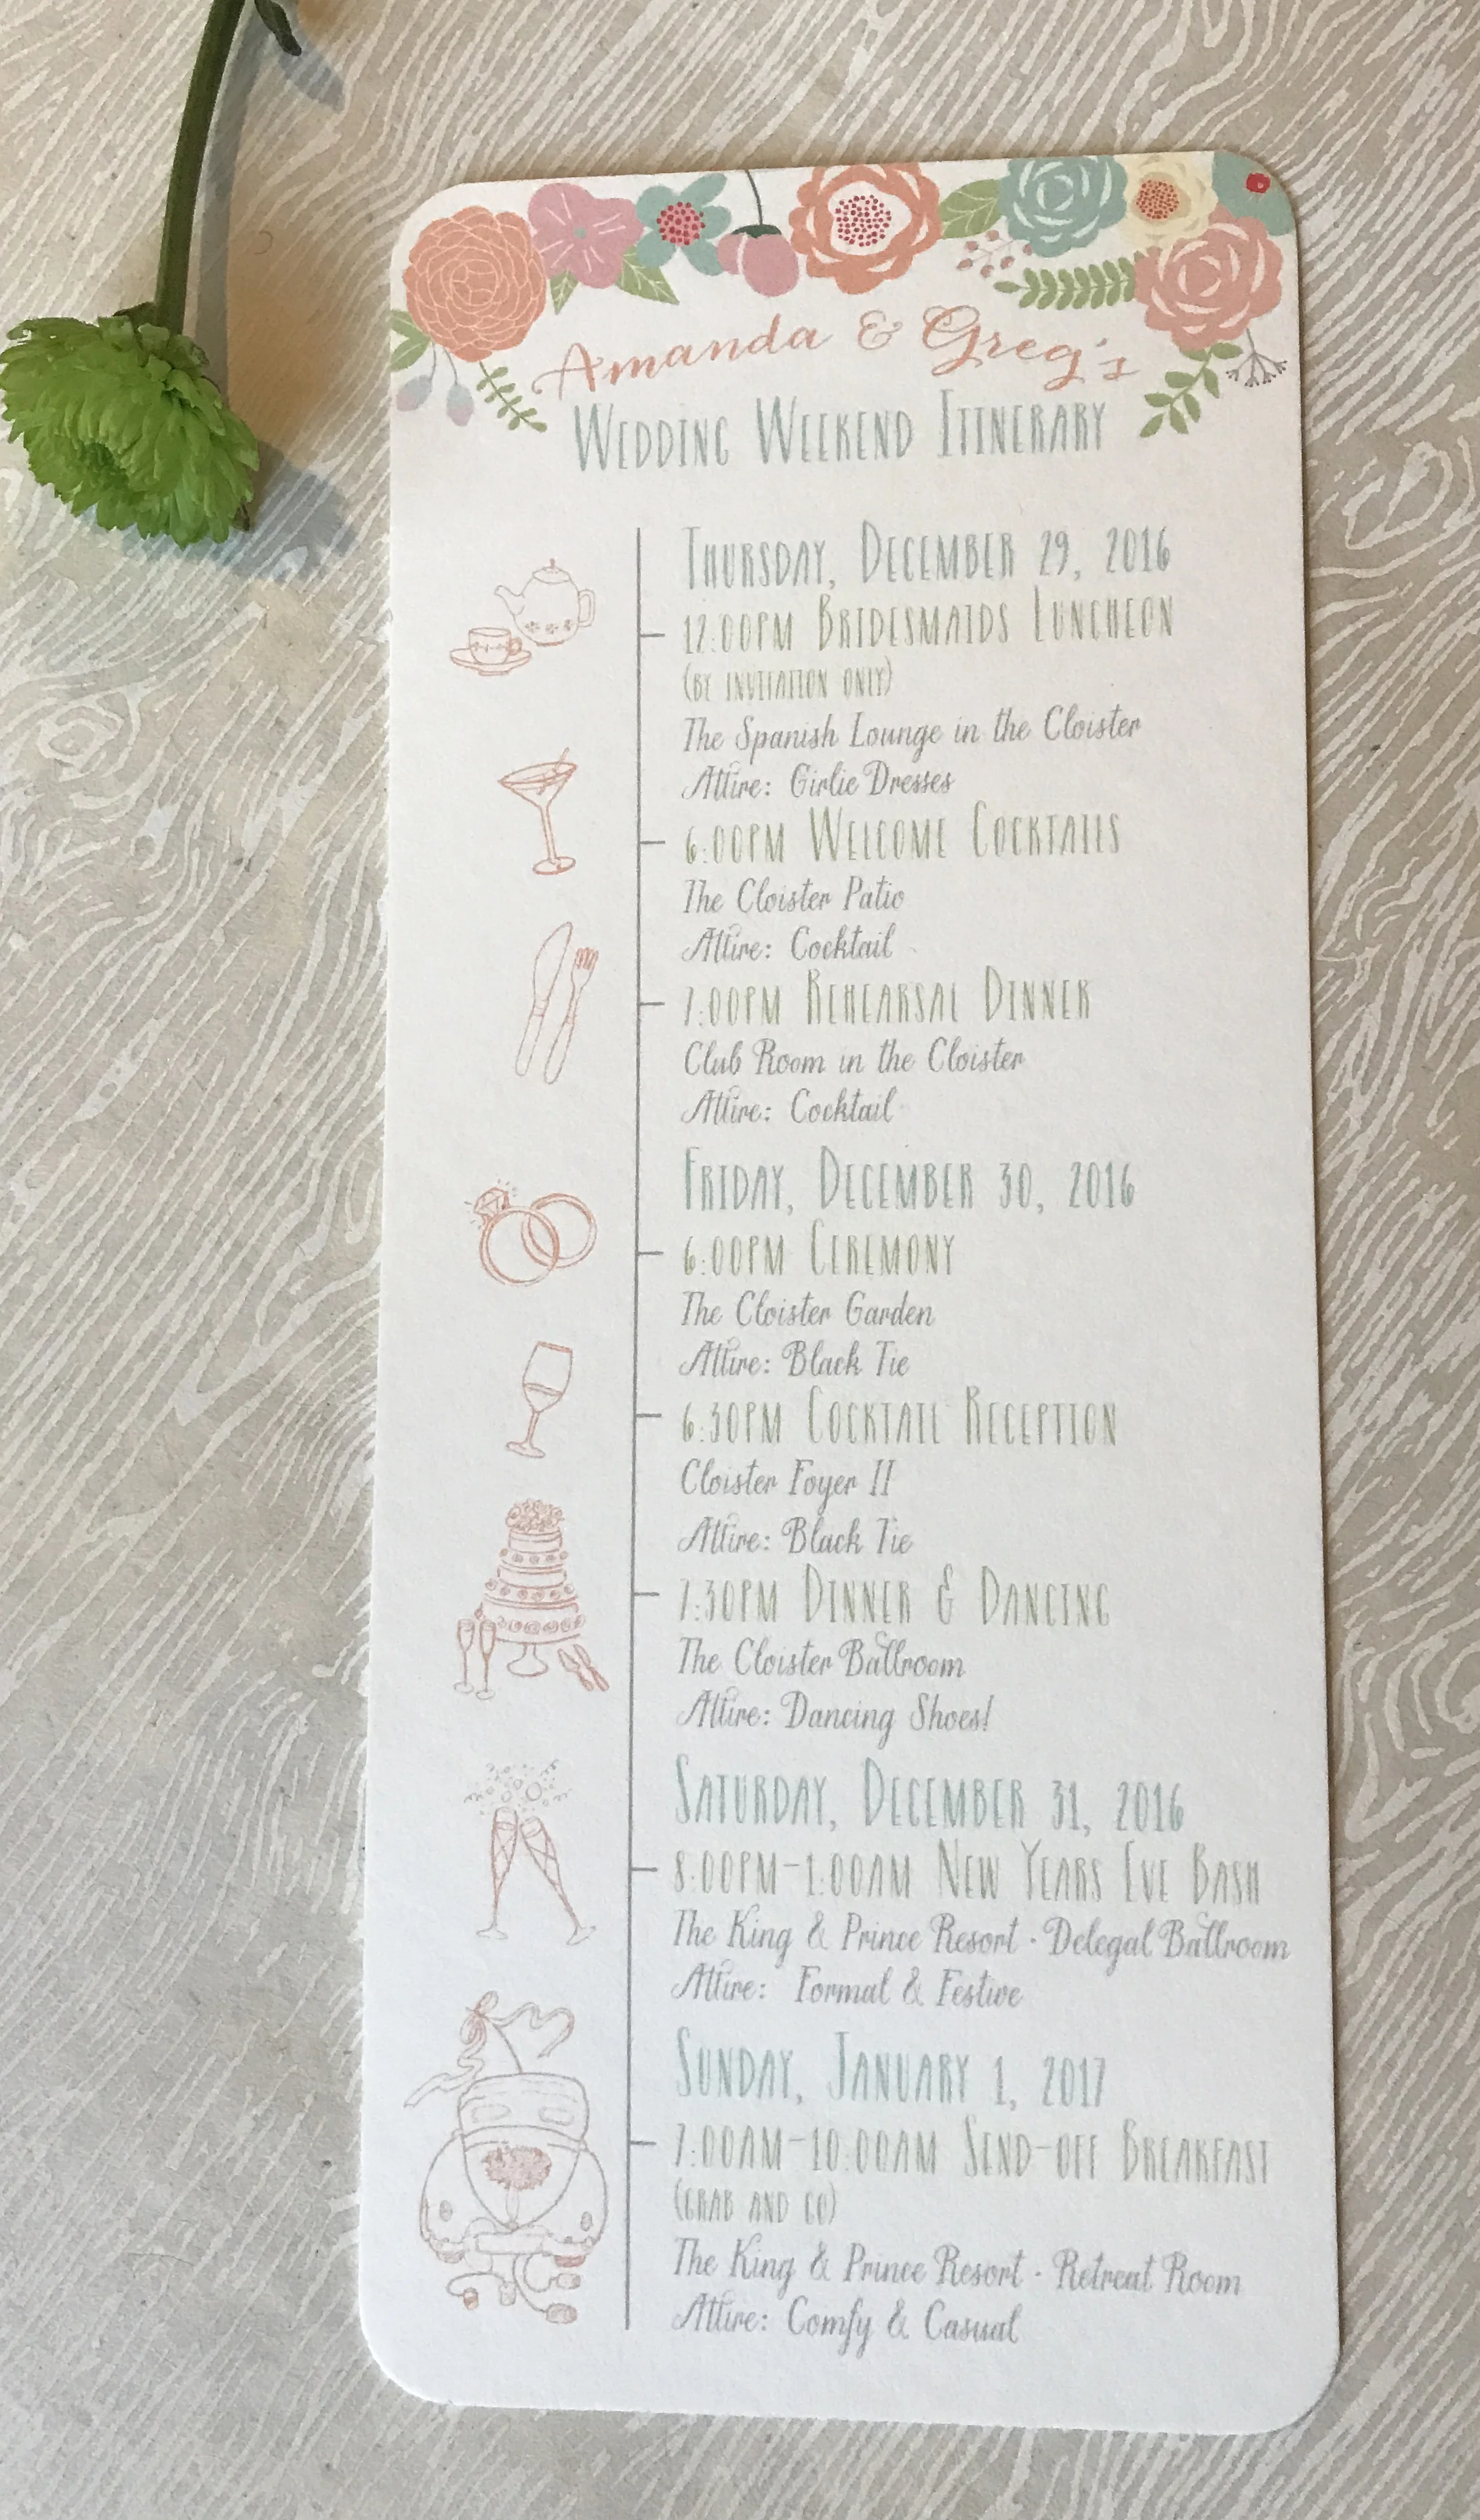 Amanda & Greg's
Wedding Weekend Itinerary
Thursday, December 29, 2016
12:00pm Bridesmaids Luncheon
(by invitation only)
The Spanish Lounge in the Cloister
Attire: Girlie Dresses
6:00pm Welcome Cocktails
The Cloister Patio
Attire: Cocktail
7:00pm Rehearsal Dinner
Club Room in the Cloister
Attire: Cocktail
Friday, December 30, 2016
6:00pm Ceremony
The Cloister Garden
Attire: Black Tie
6:30pm Cocktail Reception
Cloister Foyer II
Attire: Black Tie
7:30pm Dinner & Dancing
The Cloister Ballroom
Attire: Dancing Shoes!
Saturday, December 31, 2016
8:00pm-1:00am New Years Eve Bash
The King & Prince Resort · Delegal Ballroom
Attire: Formal & Festive
Sunday, January 1, 2017
7:00am-10:00am Send-off Breakfast
(grab and go)
The King & Prince Resort · Retreat Room
Attire: Comfy & Casual